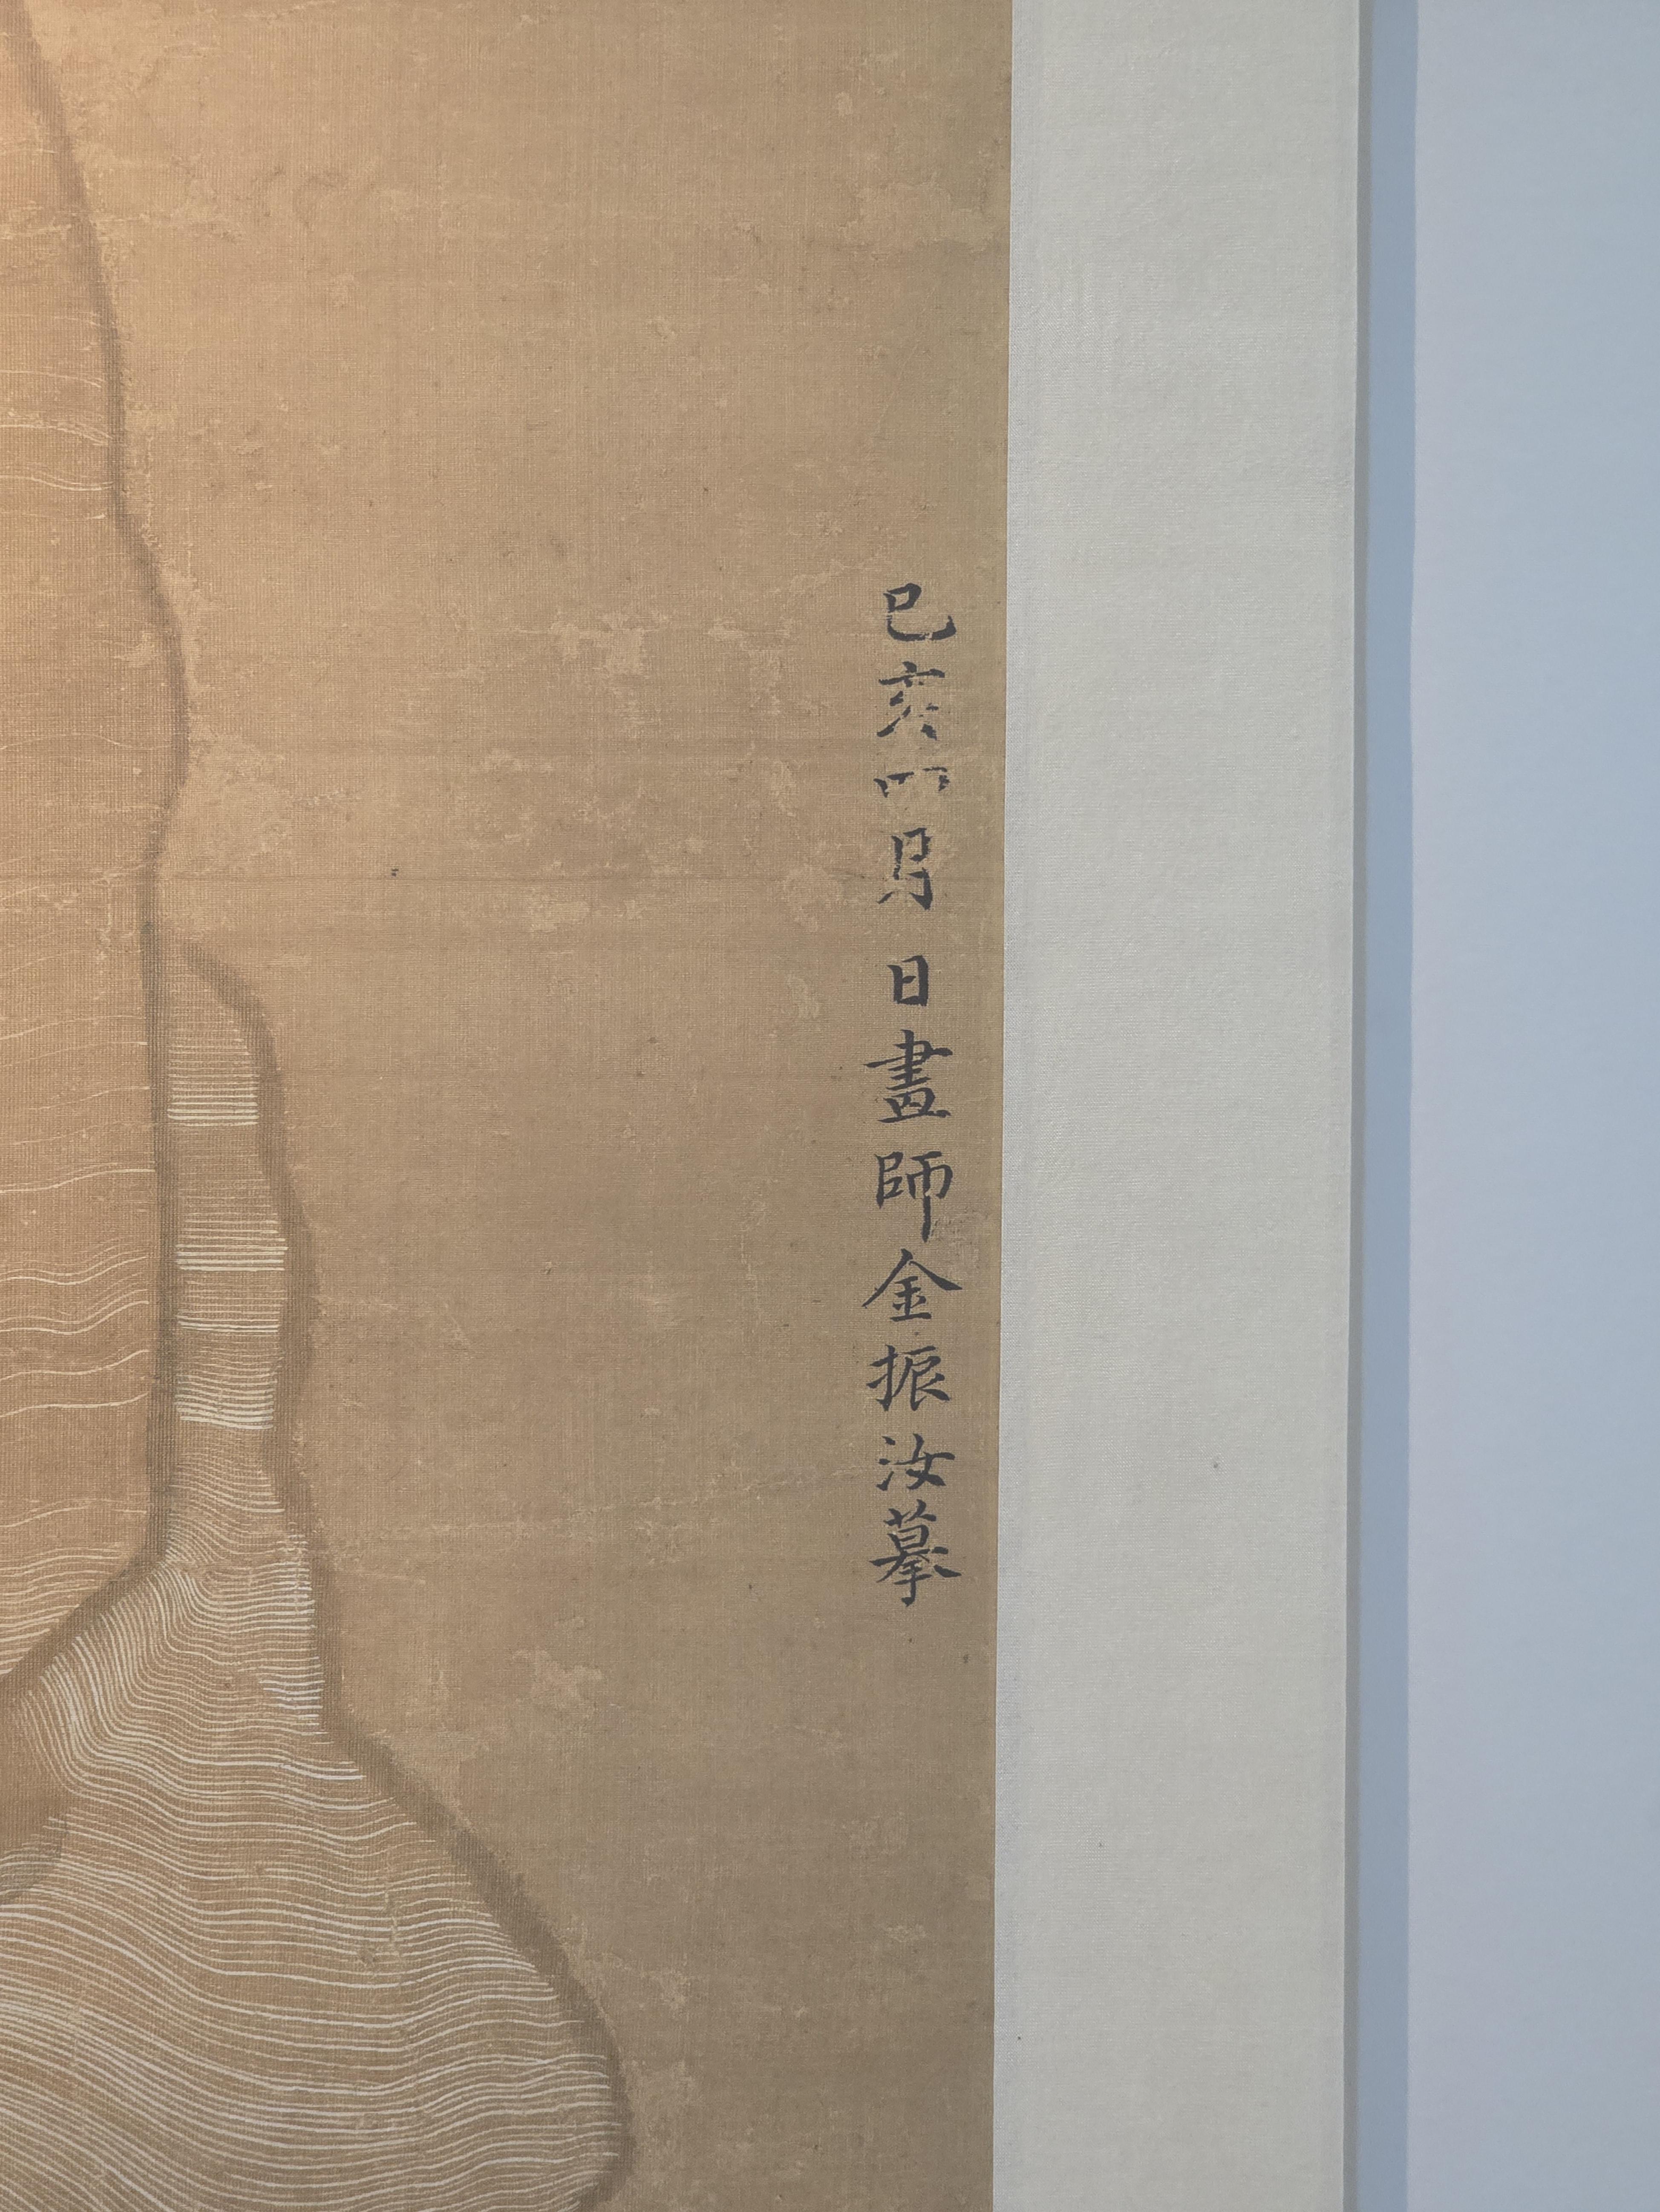 己亥四月 日畫師金振汝摹